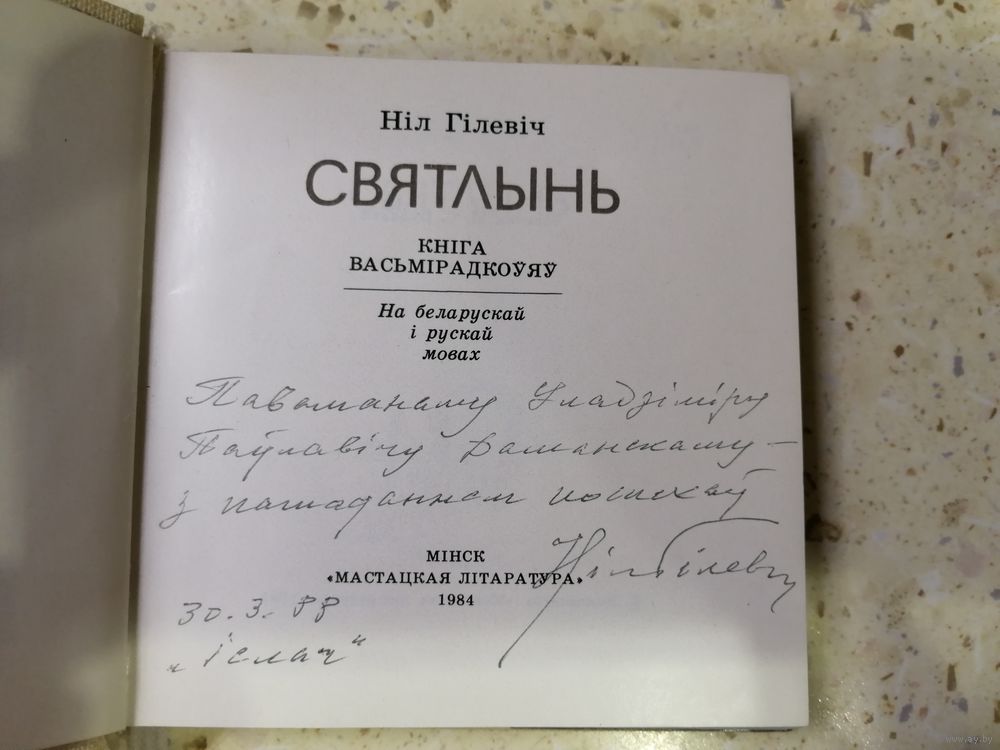 Ніл Гілевіч
СВЯТЛЫНЬ
КНІГА
ВАСЬМІРАДКОЎЯЎ
На беларускай
і рускай
мовах
Паважанаму Уладзіміру
Паўлавічу Даманскаму –
з пажаданнем поспехаў
Ніл Гілевіч
МІНСК
«МАСТАЦКАЯ ЛІТАРАТУРА»
1984
30.3.88
"Іслач"
www.ay.by